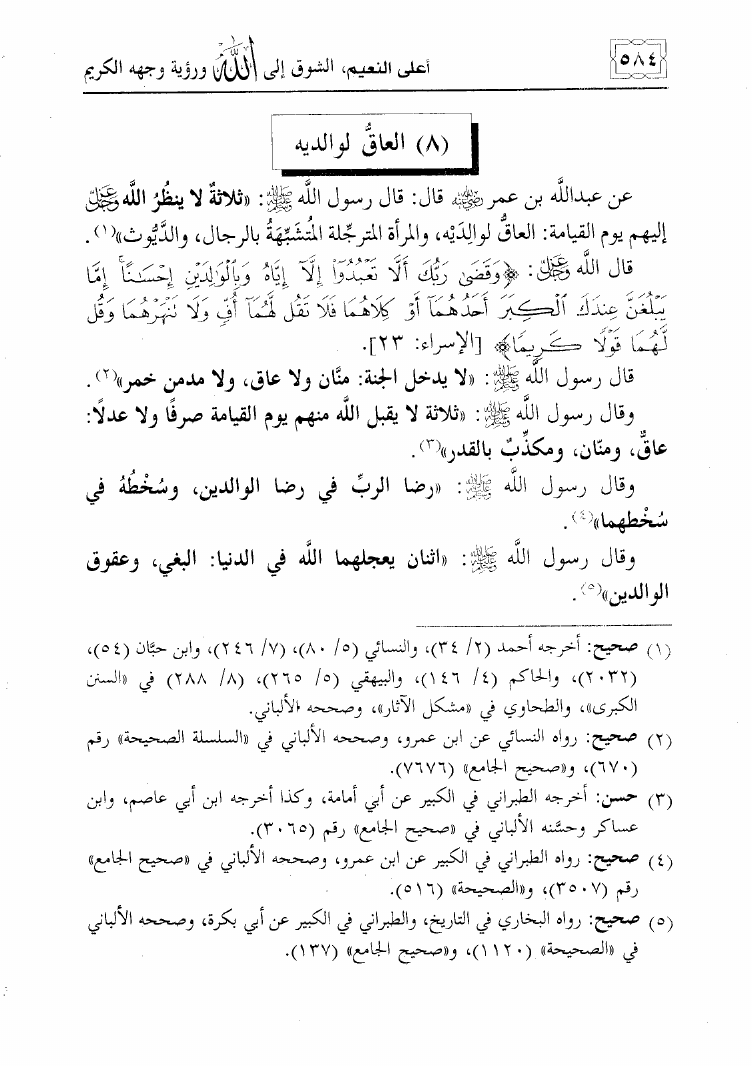 ٥٨٤
أعلى النعيم، الشوق إلى الله ورؤية وجهه الكريم
(٨) العاقُّ لوالديه
عن عبدالله بن عمر رضي الله عنه قال: قال رسول الله ﷺ: «ثلاثةٌ لا ينظُرُ الله عز وجل
إليهم يوم القيامة: العاقُّ لوالِدَيْه، والمرأة المترجِّلة المُتشَبِّهَةُ بالرجال، والدَّيُّوث»(١).
قال الله عز وجل: ﴿وَقَضَىٰ رَبُّكَ أَلَّا تَعْبُدُوٓا۟ إِلَّآ إِيَّاهُ وَبِٱلْوَٰلِدَيْنِ إِحْسَٰنًا ۚ إِمَّا
يَبْلُغَنَّ عِندَكَ ٱلْكِبَرَ أَحَدُهُمَآ أَوْ كِلَاهُمَا فَلَا تَقُل لَّهُمَآ أُفٍّ وَلَا نَنْهَرْهُمَا وَقُل
لَّهُمَا قَوْلًا كَرِيمًا﴾ [الإسراء: ٢٣].
قال رسول الله ﷺ: «لا يدخل الجنة: منَّان ولا عاق، ولا مدمن خمر»(٢).
وقال رسول الله ﷺ: «ثلاثة لا يقبل الله منهم يوم القيامة صرفًا ولا عدلًا:
عاقٌّ، ومنّان، ومكذِّبٌ بالقدر»(٣).
وقال رسول الله ﷺ: «رضا الربِّ في رضا الوالدين، وسُخْطُهُ في
سُخْطهما»(٤).
وقال رسول الله ﷺ: «اثنان يعجلهما الله في الدنيا: البغي، وعقوق
الوالدين»(٥).
(١) صحيح: أخرجه أحمد (٢/ ٣٤)، والنسائي (٥/ ٨٠)، (٧/ ٢٤٦)، وابن حبَّان (٥٤)،
(٢٠٣٢)، والحاكم (٤/ ١٤٦)، والبيهقي (٥/ ٢٦٥)، (٨/ ٢٨٨) في «السنن
الكبرى»، والطحاوي في «مشكل الآثار»، وصححه الألباني.
(٢) صحيح: رواه النسائي عن ابن عمرو، وصححه الألباني في «السلسلة الصحيحة» رقم
(٦٧٠)، و«صحيح الجامع» (٧٦٧٦).
(٣) حسن: أخرجه الطبراني في الكبير عن أبي أمامة، وكذا أخرجه ابن أبي عاصم، وابن
عساكر وحسَّنه الألباني في «صحيح الجامع» رقم (٣٠٦٥).
(٤) صحيح: رواه الطبراني في الكبير عن ابن عمرو، وصححه الألباني في «صحيح الجامع»
رقم (٣٥٠٧)، و«الصحيحة» (٥١٦).
(٥) صحيح: رواه البخاري في التاريخ، والطبراني في الكبير عن أبي بكرة، وصححه الألباني
في «الصحيحة» (١١٢٠)، و«صحيح الجامع» (١٣٧).